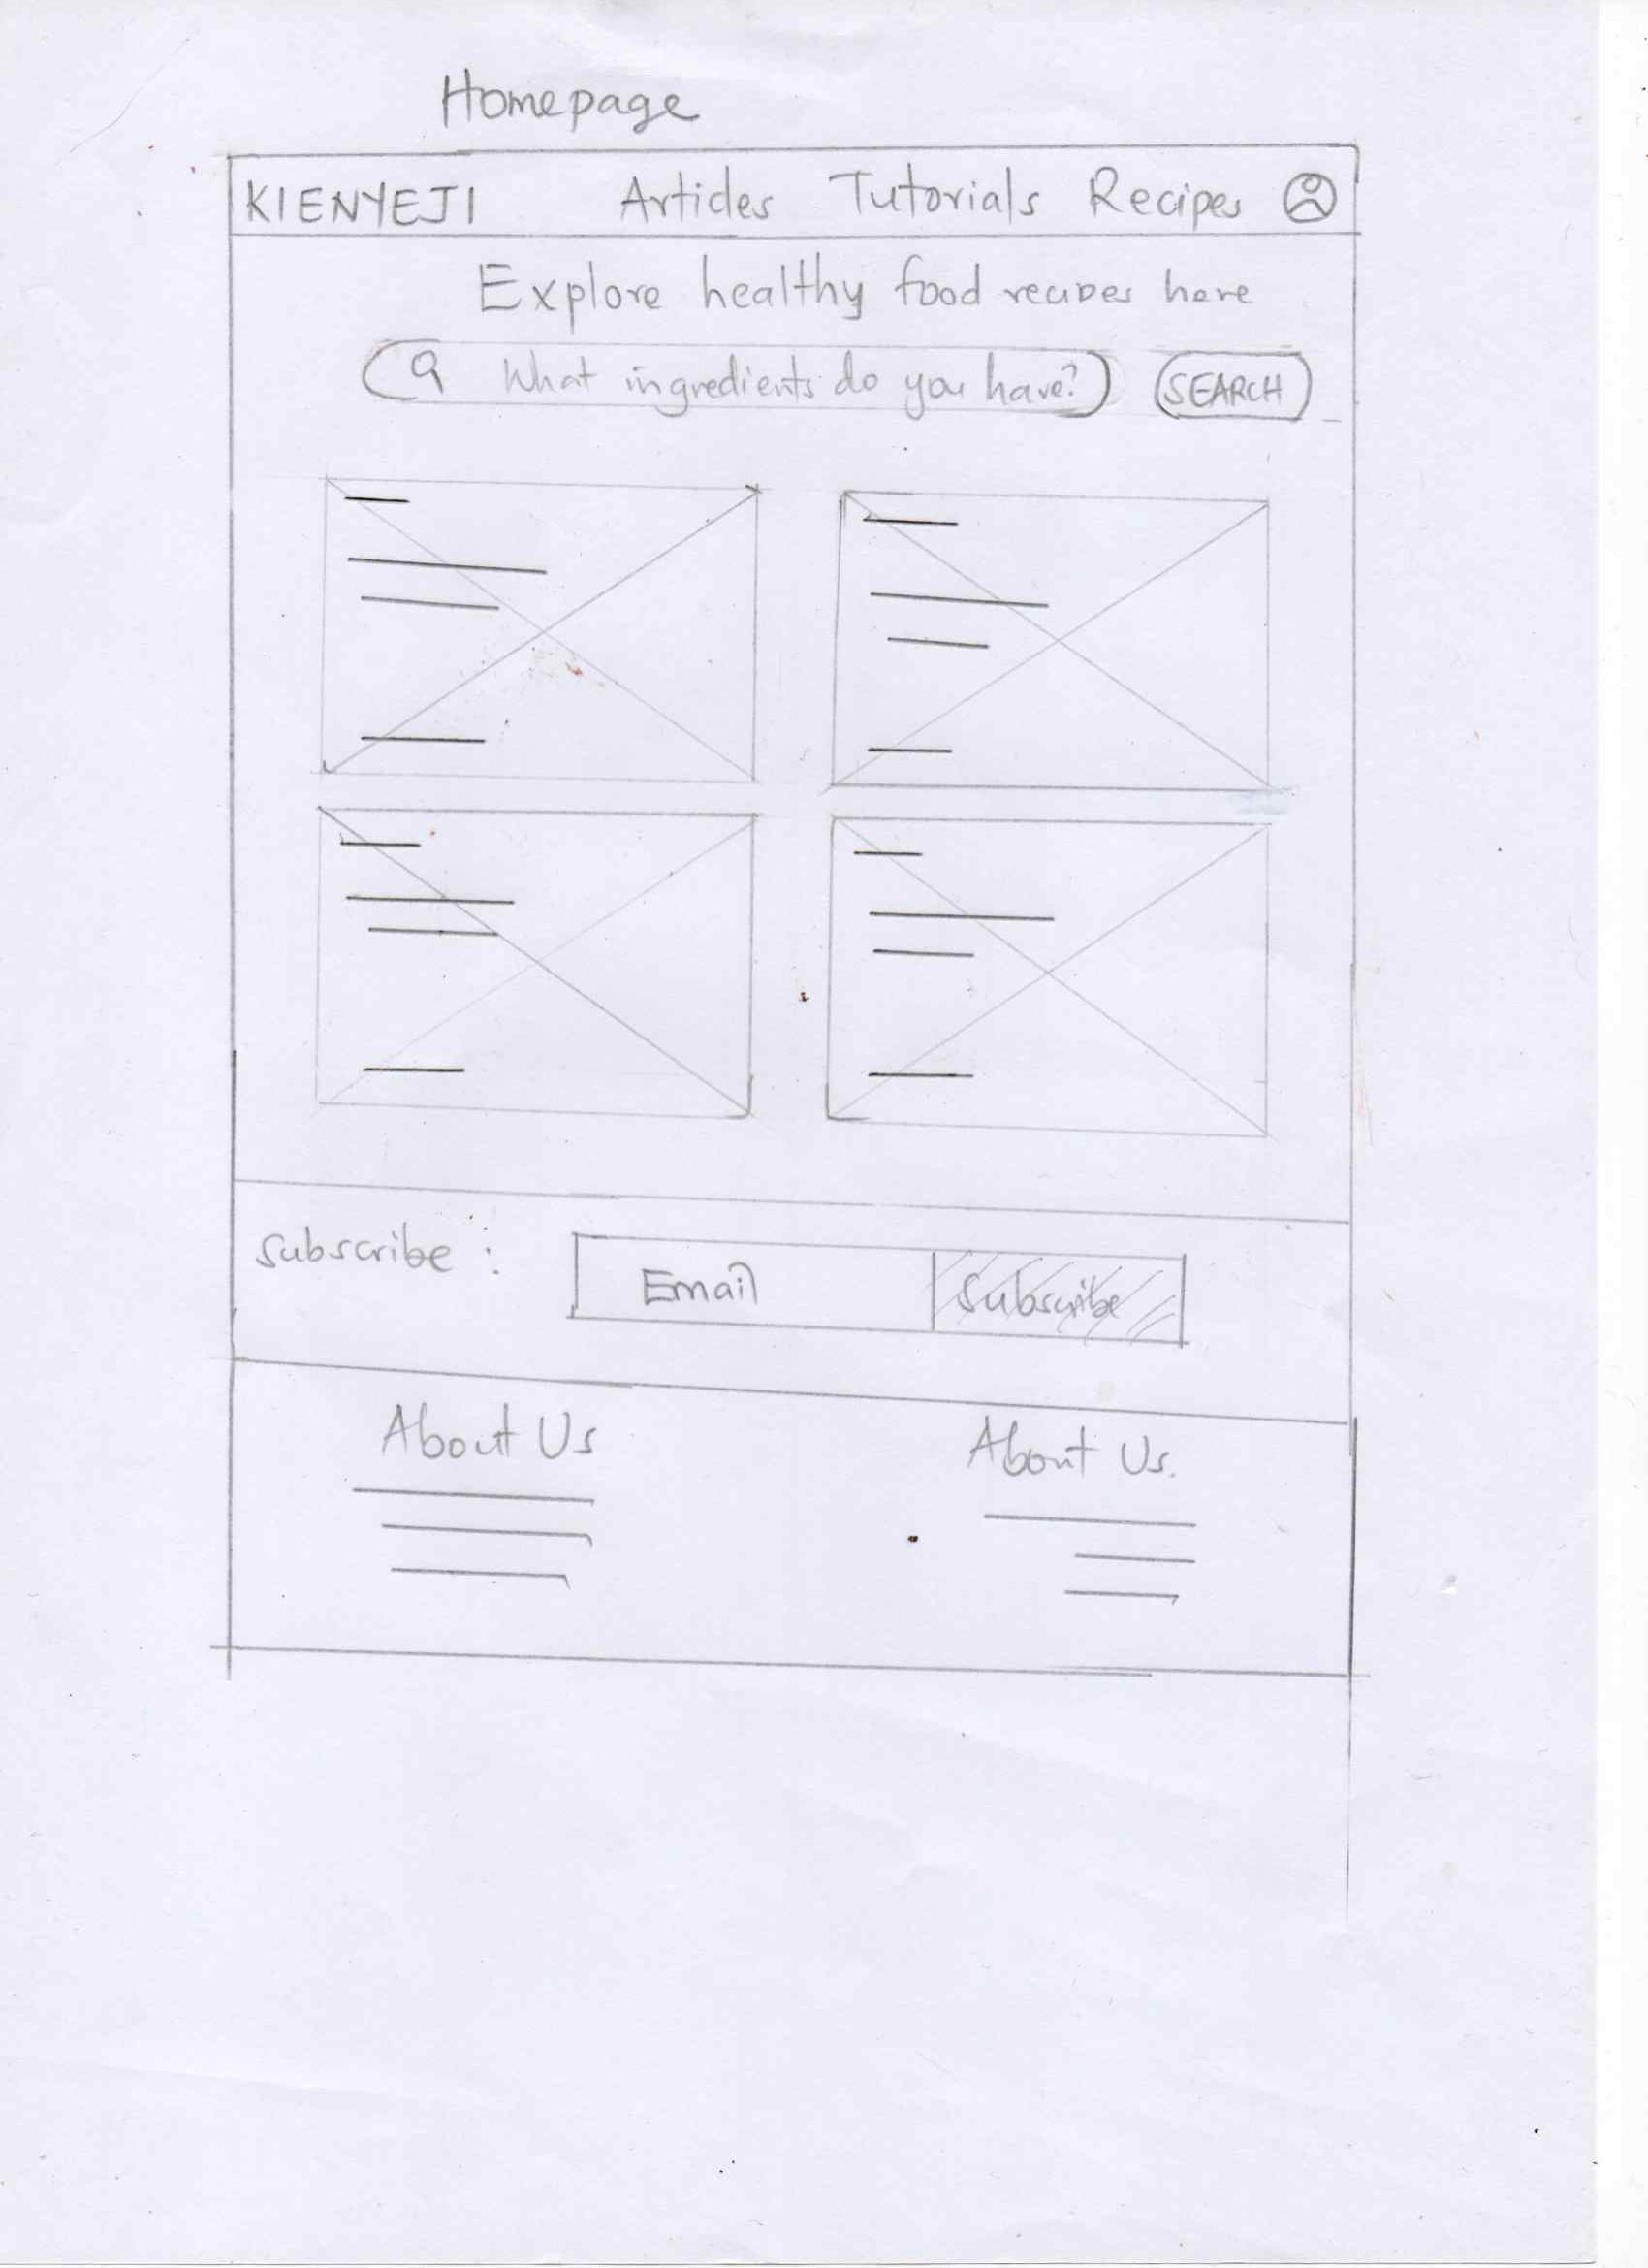 Homepage
KIENYEJI Articles Tutorials Recipes
Explore healthy food recipes here
What ingredients do you have? SEARCH
Subscribe :
Email Subscribe
About Us About Us.